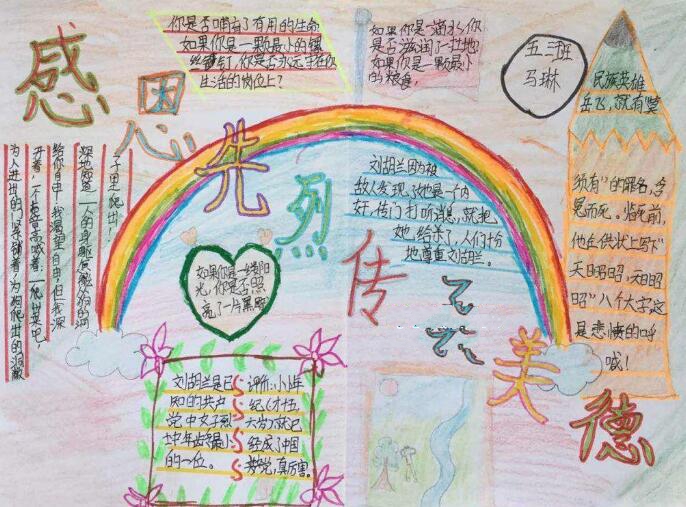 感恩先烈传承美德
你是否哺育了有用的生命
如果你是一颗最小的螺
丝钉,你是否永远守在你
生活的岗位上?
如果你是一滴水,你
是否滋润了一寸土地
如果你是一颗最小
的粮食,
五三班
马琳
民族英雄
岳飞,就有"莫
须有"的罪名,含
冤而死,临死前,
他在供状上写下"
天日昭昭,天日昭
昭"八个大字,这
是悲愤的呼
喊!
为人进出的门紧锁着,为狗爬出的洞敞
开着,一个声音高喊着,爬出来吧,
给你自由!我渴望自由,但我深
深地知道,人的身躯怎能从狗的洞
子里爬出!
刘胡兰因为被
敌人发现,说她是一个内
奸,传门打听消息,就把
她给杀了,人们十份
地尊重刘胡兰。
如果你是一缕阳
光,你是否照
亮了一片黑暗
刘胡兰是已
知的共产
党中女子烈
士中年龄最小
的一位。
评价:小小年
纪(才十五,
六岁)就记
经成了中国
梦党,真厉害。